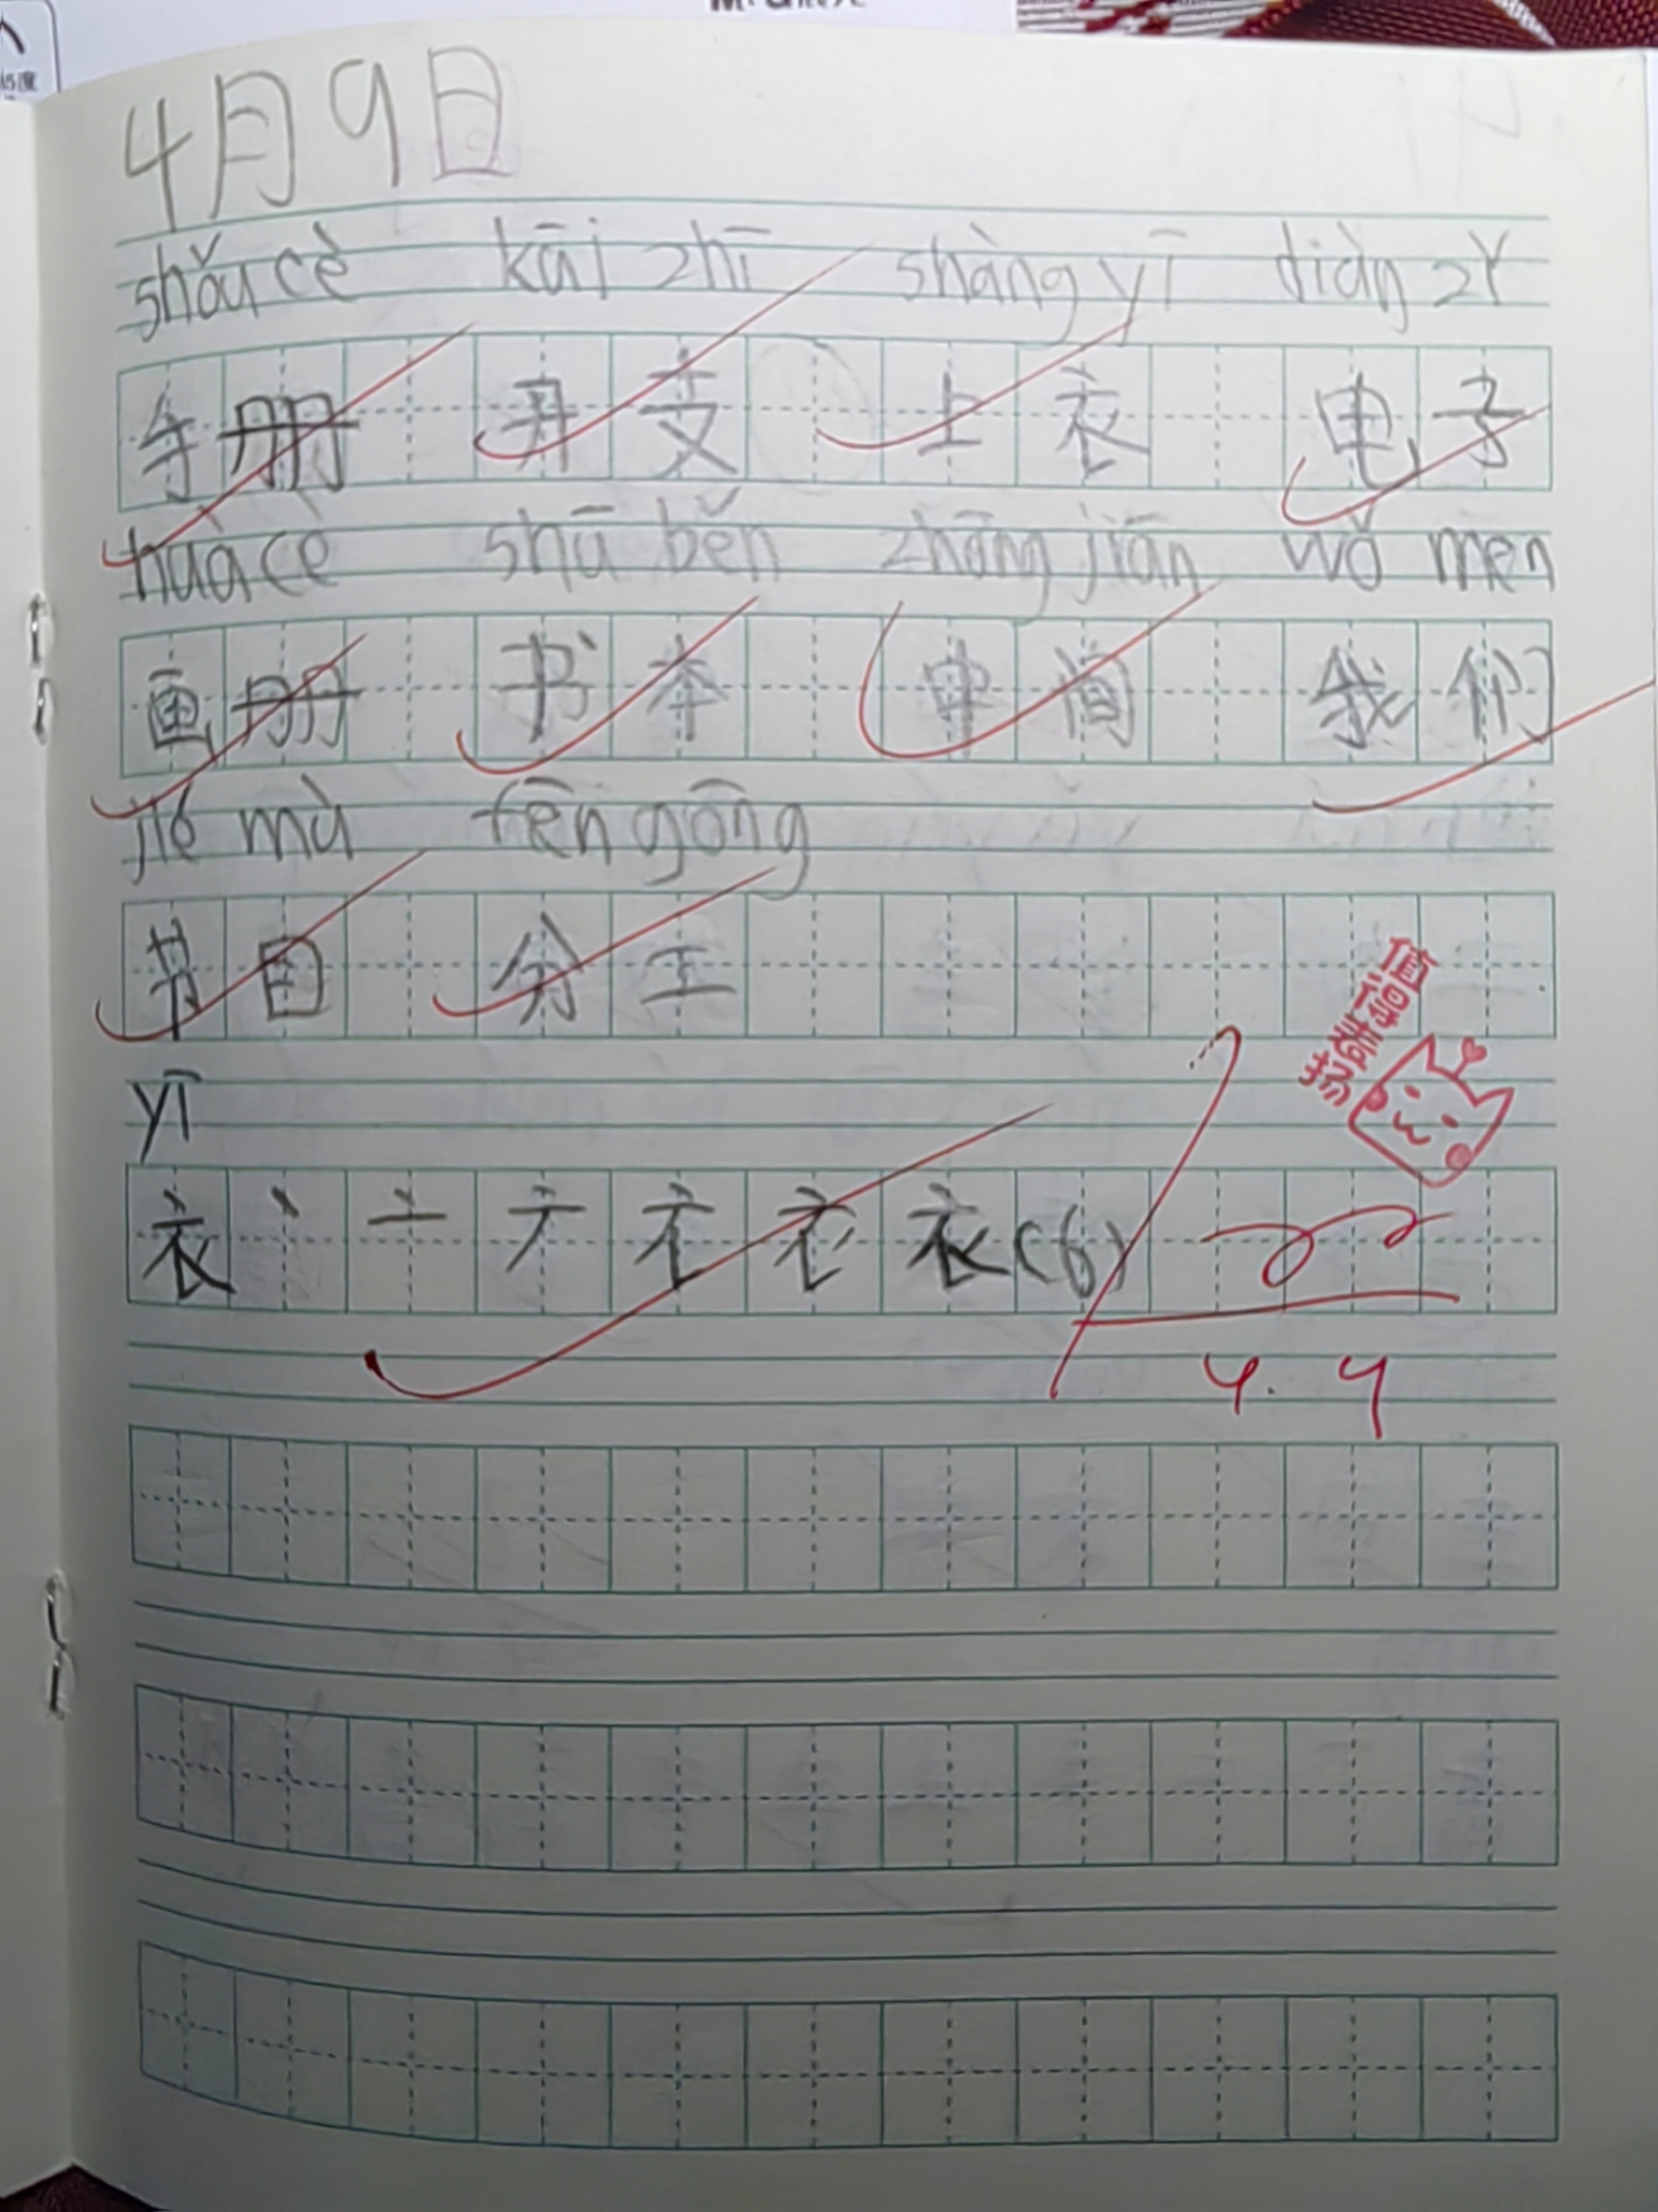 4月9日
shǒu cè kāi zhī shàng yī diàn zǐ
手册 开支 上衣 电子
huà cè shū běn zhōng jiān wǒ men
画册 书本 中间 我们
jié mù fēn gōng
节目 分工
值得表扬
yī
衣 丶 亠 衣(6)
4.9